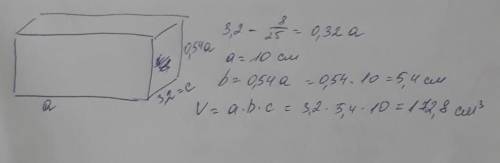 3,2 - 8/25 = 0,32 a
0,54a
a = 10 см
3,2 = c
b = 0,54a = 0,54 · 10 = 5,4 см
a
V = a · b · c = 3,2 · 5,4 · 10 = 172,8 см³